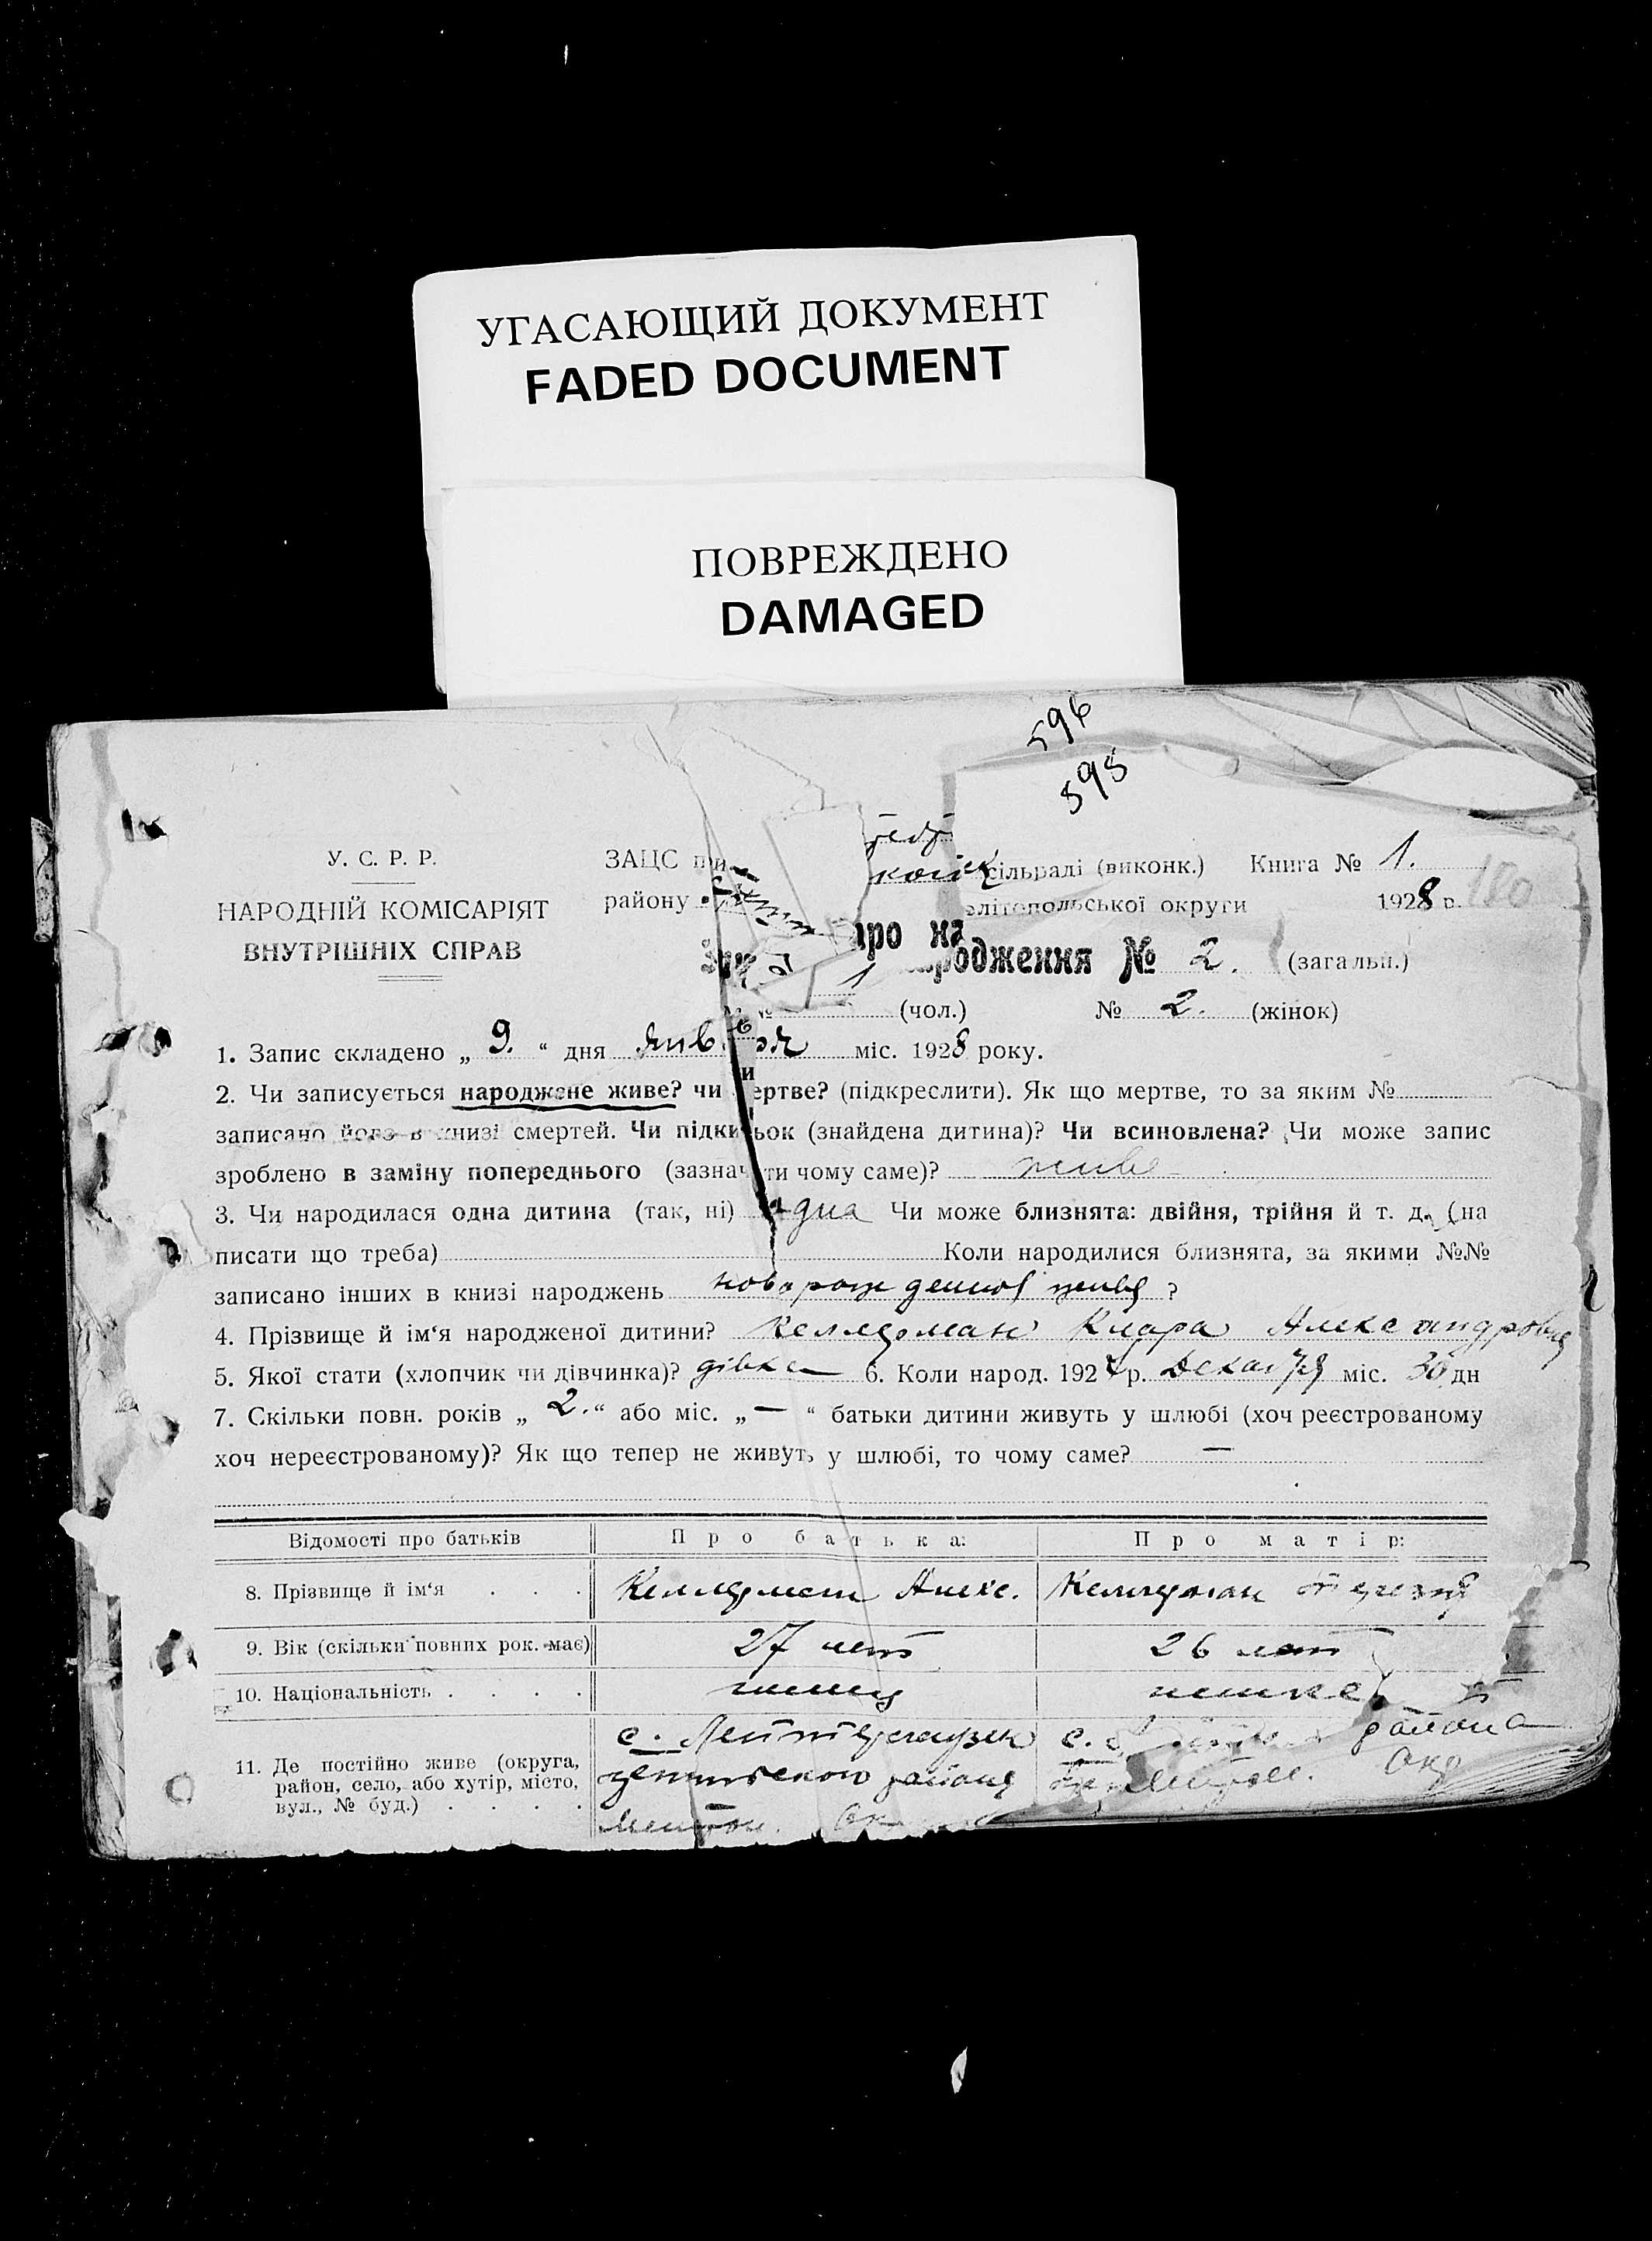 УГАСАЮЩИЙ ДОКУМЕНТ
FADED DOCUMENT
ПОВРЕЖДЕНО
DAMAGED
596
595
У. С. Р. Р.
НАРОДНІЙ КОМІСАРІЯТ
ВНУТРІШНІХ СПРАВ
ЗАЦС при сільраді (виконк.) Книга № 1.
району літопольської округи 1928 р. 180
про народження № 2. (загальн.)
1 (чол.) № 2. (жінок)
1. Запис складено „ 9. “ дня января міс. 1928 року.
2. Чи записується народжене живе? чи мертве? (підкреслити). Як що мертве, то за яким №
записано його в книзі смертей. Чи підкидьок (знайдена дитина)? Чи всиновлена? Чи може запис
зроблено в заміну попереднього (зазначити чому саме)? живе
3. Чи народилася одна дитина (так, ні) одна Чи може близнята: двійня, трійня й т. д. (на
писати що треба) Коли народилися близнята, за якими №№
записано інших в книзі народжень ?
4. Прізвище й ім‘я народженої дитини? Клара Александровна
5. Якої стати (хлопчик чи дівчинка)? 6. Коли народ. 1927 р. міс. 30 дн
7. Скільки повн. років „ 2. “ або міс. „ — “ батьки дитини живуть у шлюбі (хоч реєстрованому
хоч нереєстрованому)? Як що тепер не живуть у шлюбі, то чому саме? —
Відомості про батьків Про батька: Про матір:
8. Прізвище й ім‘я . . . Алекс.
9. Вік (скільки повних рок. має) 27 лет 26 лет
10. Національність . . . . немец немка
11. Де постійно живе (округа,
район, село, або хутір, місто,
вул., № буд.) . . . .
с.
района
с. района
Окр